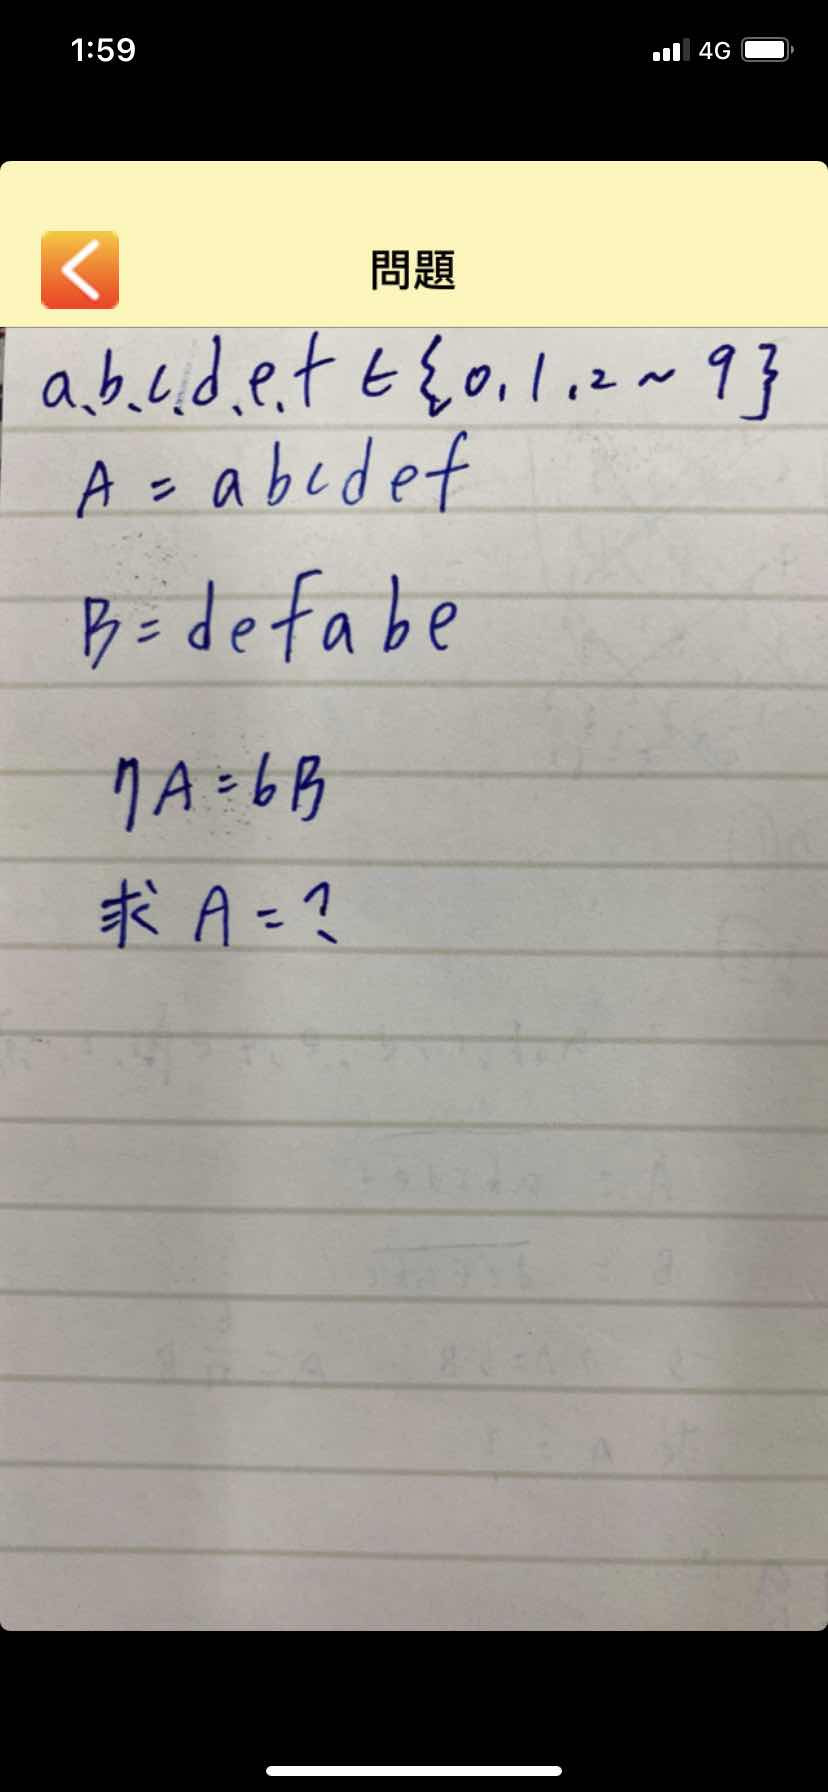 1:59
4G
問題
a、b、c、d、e、f ∈ {0, 1, 2 ~ 9}
A = abcdef
B = defabe
7A = 6B
求 A = ?